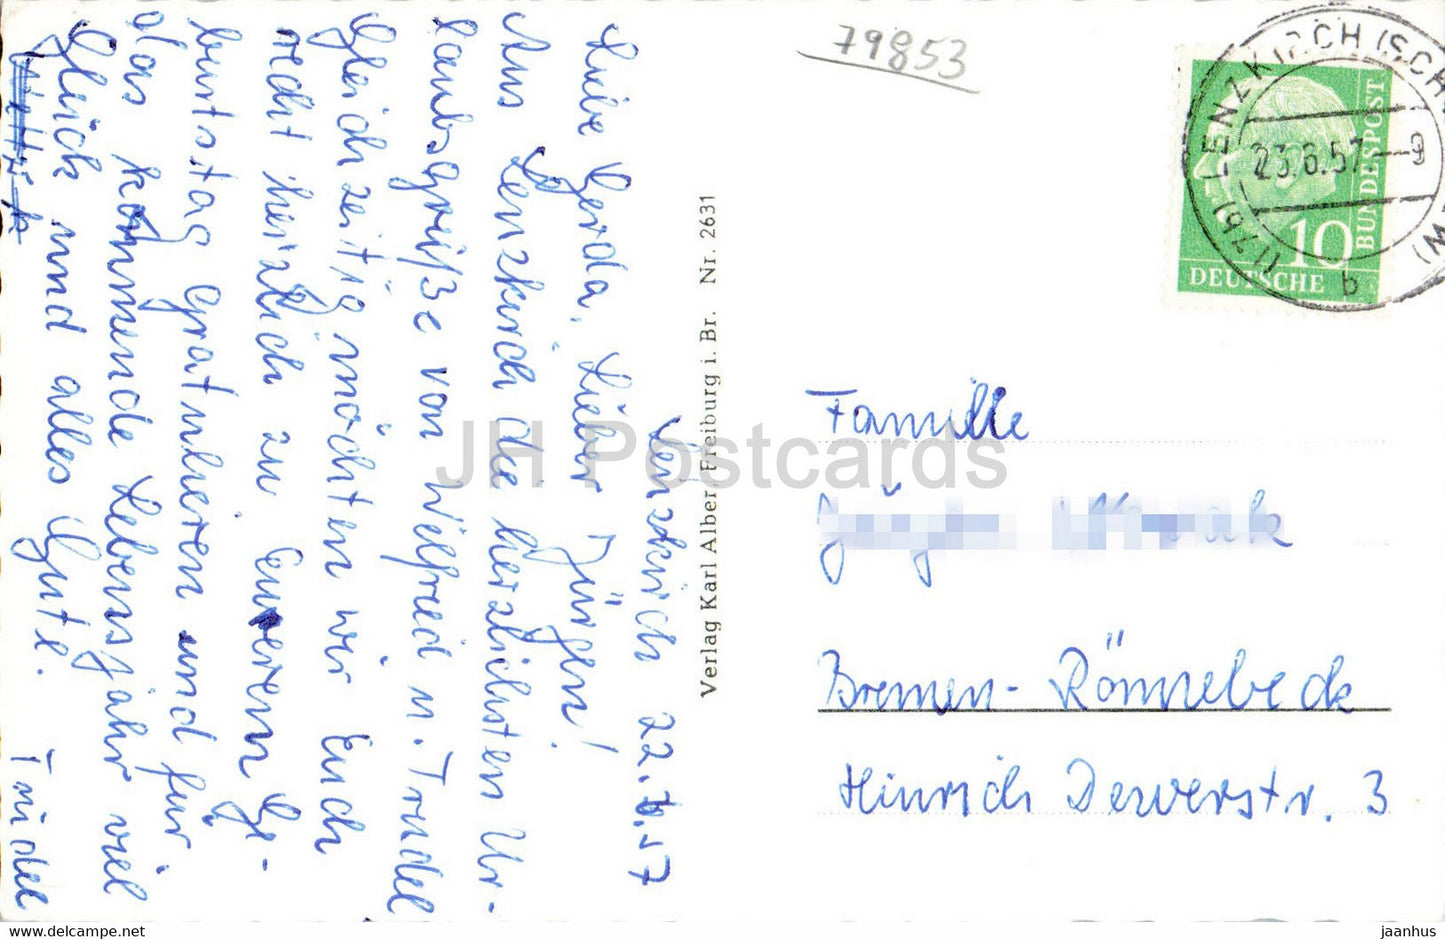 79853
(17b) LENZKIRCH (SCH
W)
23.6.57--9
b
10
DEUTSCHE
BUNDESPOST
Lenzkirch 22.6.57
Liebe Gerda, Lieber Jürgen!
Aus Lenzkirch die herzlichsten Ur-
laubsgrüße von Welfried u. Trudel
Gleichzeitig möchten wir Euch
recht herzlich zu Eurerem Ge-
burtstag gratulieren und für
das kommende Lebensjahr viel
Glück und alles Gute.
Trudel
Verlag Karl Alber, Freiburg i. Br. Nr. 2631
Familie
Bremen-Rönnebeck
Hinrich Dewerstr. 3
JH Postcards
www.delcampe.net
jaanhus